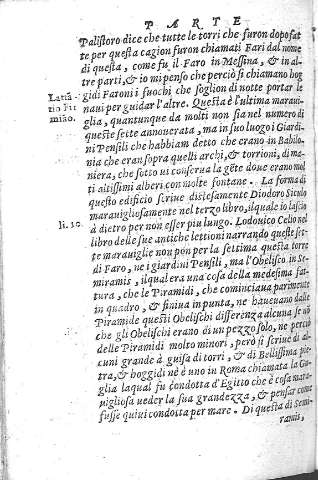 PARTE
Palistoro dice che tutte le torri che furon dopo fat
te per questa cagion furon chiamati Fari dal nome
di questa, come fu il Faro in Messina, & in al-
tre parti, & io mi penso che perciò si chiamano hog
gidi Faroni i fuochi che soglion di notte portar le
naui per guidar l'altre. Questa è l'ultima maraui-
glia, quantunque da molti non sia nel numero di
queste sette annouerata, ma in suo luogo i Giardi-
ni Pensili che habbiam detto che erano in Babilo-
nia che eran sopra quelli archi, & torrioni, di ma-
niera, che sotto ui conserua la gēte doue erano mol
ti altissimi alberi con molte fontane. La forma di
questo edificio scriue distesamente Diodoro Siculo
marauigliosamente nel terzo libro, il quale io lascio
à dietro per non esser piu lungo. Lodouico Celio nel
libro delle sue antiche lettioni narrando queste set-
te marauiglie non pon per la settima questa torre
di Faro, ne i giardini Pensili, ma l'Obelisco in Se-
miramis, il qual era una cosa della medesima fat-
tura, che le Piramidi, che cominciaua parimente
in quadro, & finiua in punta, ne haueuano dalle
Piramide questi Obelischi differenza alcuna se nō
che gli Obelischi erano di un pezzo solo, ne perciò
delle Piramidi molto minori, però si scriue di al-
cuni grande à guisa di torri, & di Bellissima pie-
tra, & hoggidi nè è uno in Roma chiamata la Gu-
glia laqual fu condotta d'Egitto che è cosa mara-
uigliosa ueder la sua grandezza, & pensar come
fusse quiui condotta per mare. Di questa di Semi-
ramis,
Latiā
tio Fir
miāo.
li. 30.